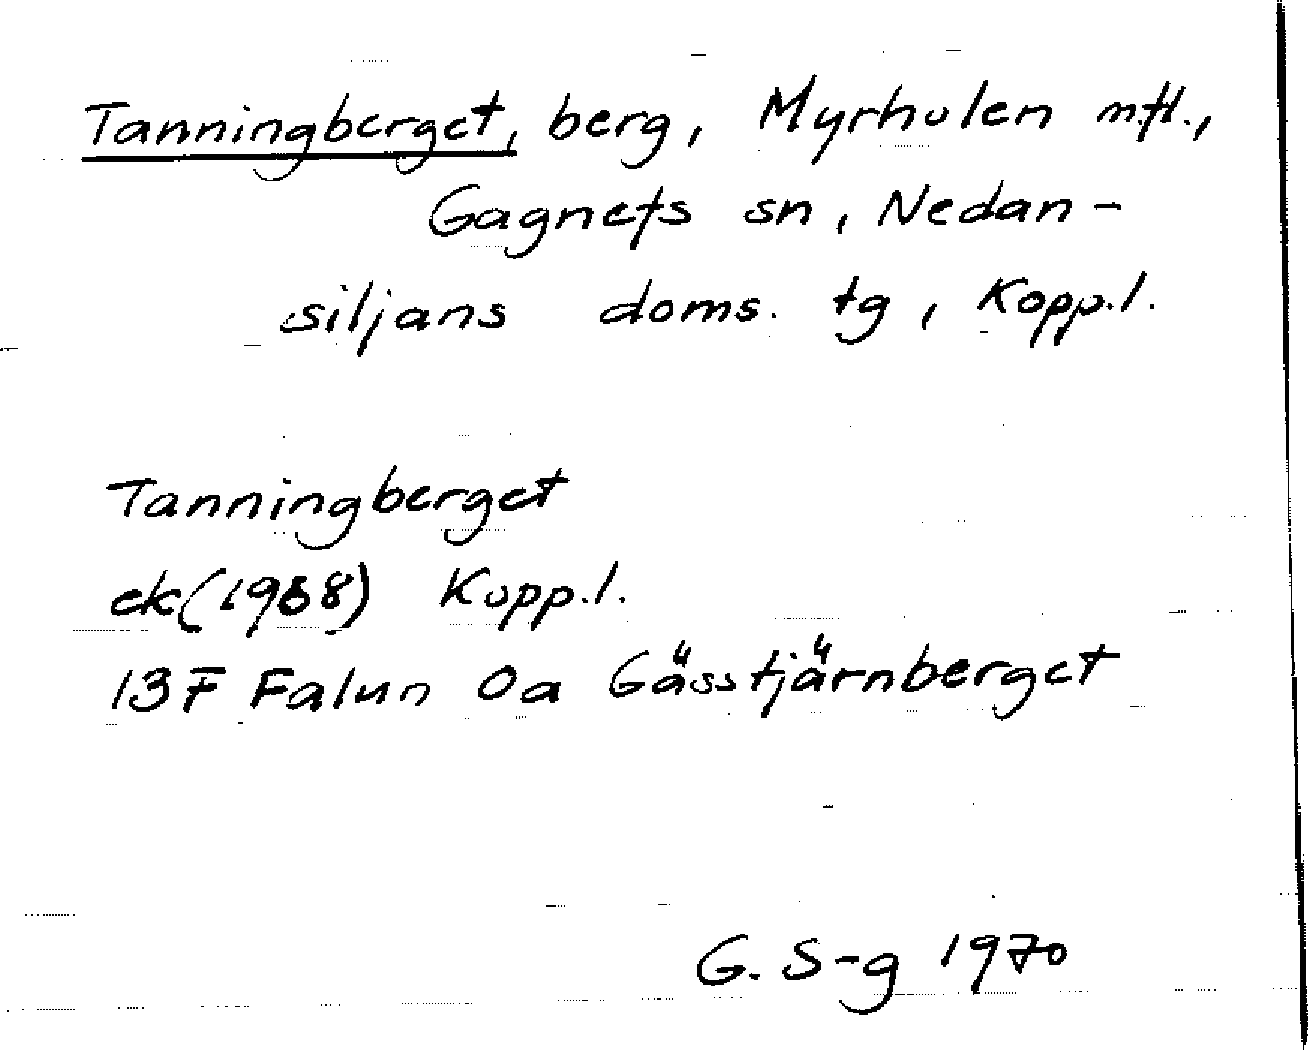 Tanningberget, berg, Myrholen m.fl.,
Gagnefs sn, Nedan-
siljans doms. tg, Kopp.l.
Tanningberget
ek (1968) Kopp.l.
13F Falun 0a Gässtjärnberget
G. S-g 1970